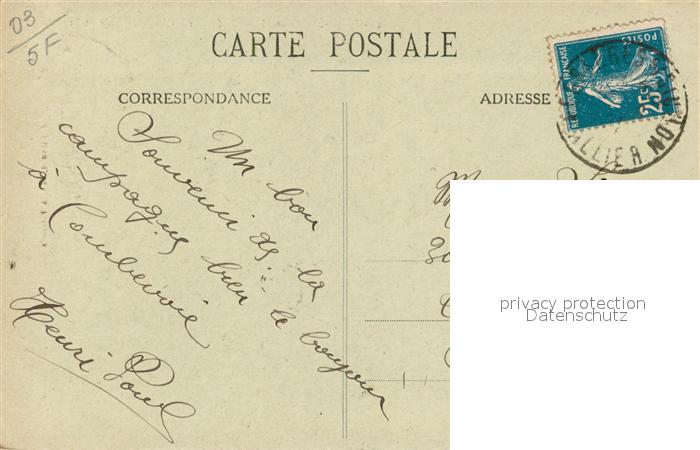 03
5F
CARTE POSTALE
CORRESPONDANCE
ADRESSE
REPUBLIQUE FRANÇAISE
POSTES
25c
ALLIER
Un bon
Souvenir de la
campagne bien le bonjour
à Courbevoie
Henri Paul
M
30
privacy protection
Datenschutz